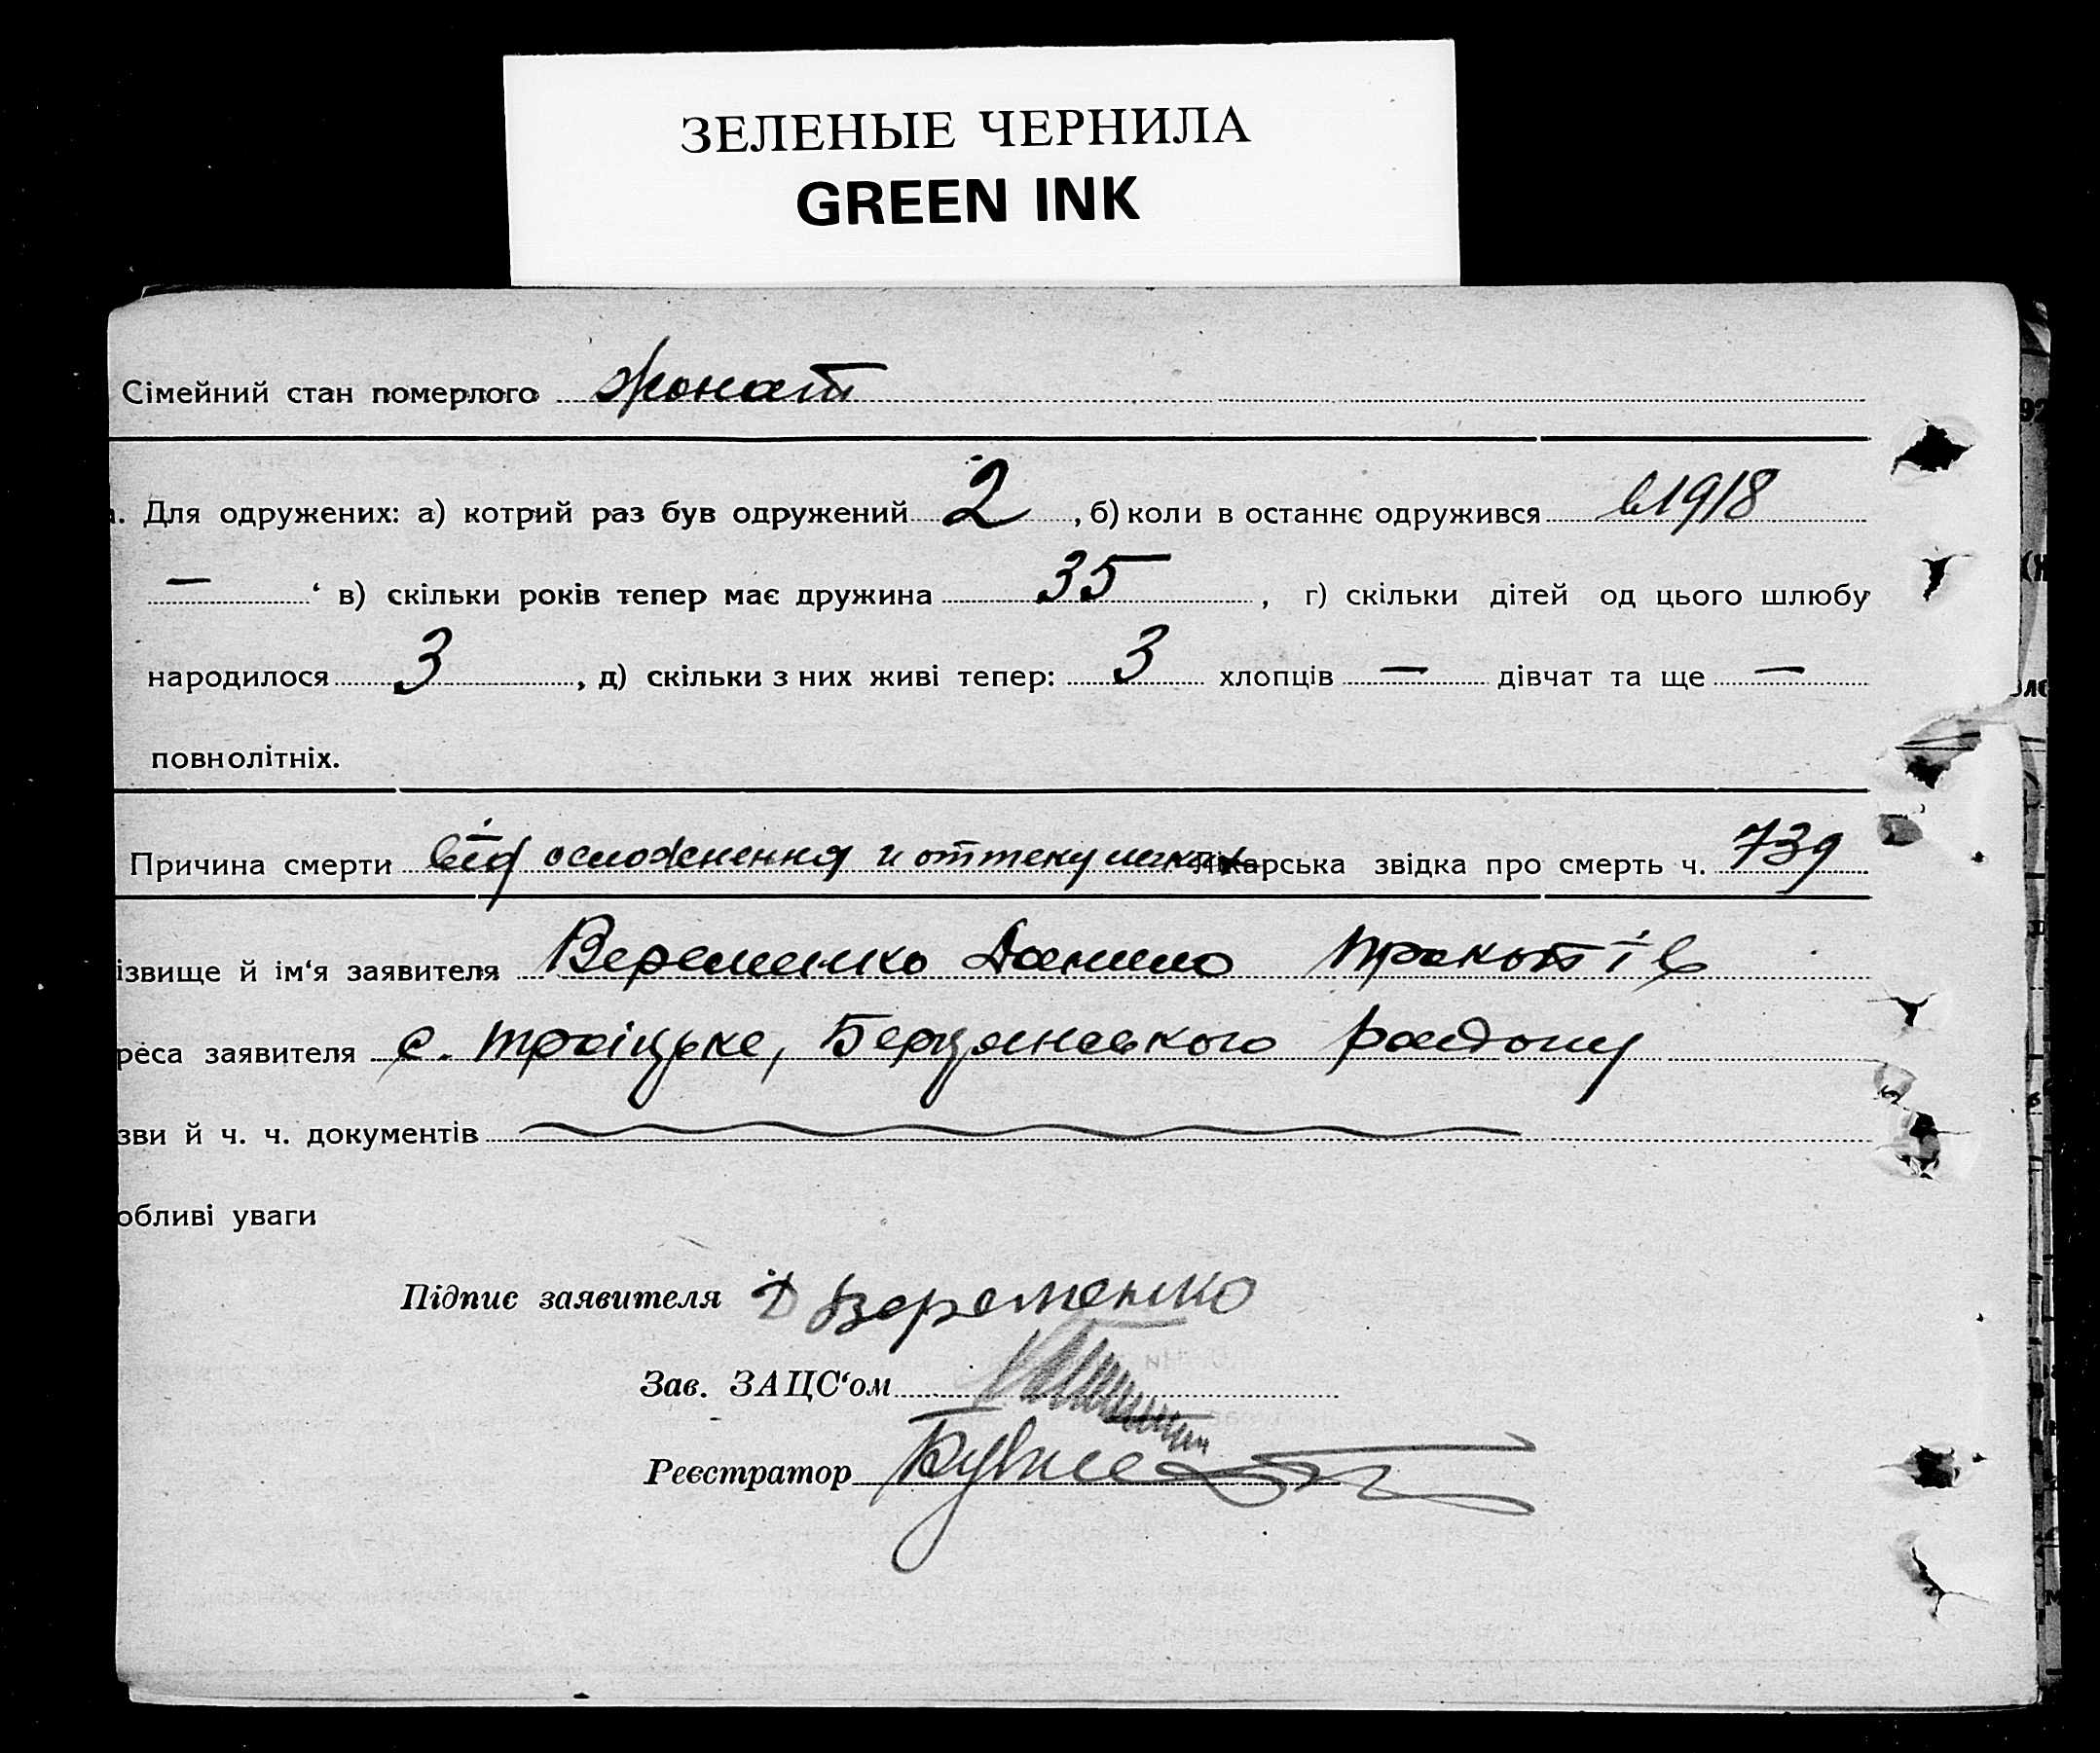 ЗЕЛЕНЫЕ ЧЕРНИЛА
GREEN INK
Сімейний стан померлого жонат
Для одружених: а) котрий раз був одружений 2, б) коли в останнє одружився в 1918
— ‘ в) скільки років тепер має дружина 35, г) скільки дітей од цього шлюбу
народилося 3, д) скільки з них живі тепер: 3 хлопців — дівчат та ще —
повнолітніх.
Причина смерти від осложнення и оттеку лікарська звідка про смерть ч. 739
ізвище й ім‘я заявителя Веременко Данило
реса заявителя с. Троіцьке, Бердянського району
зви й ч. ч. документів
обливі уваги
Підпис заявителя Д Веременко
Зав. ЗАЦС‘ом
Реєстратор